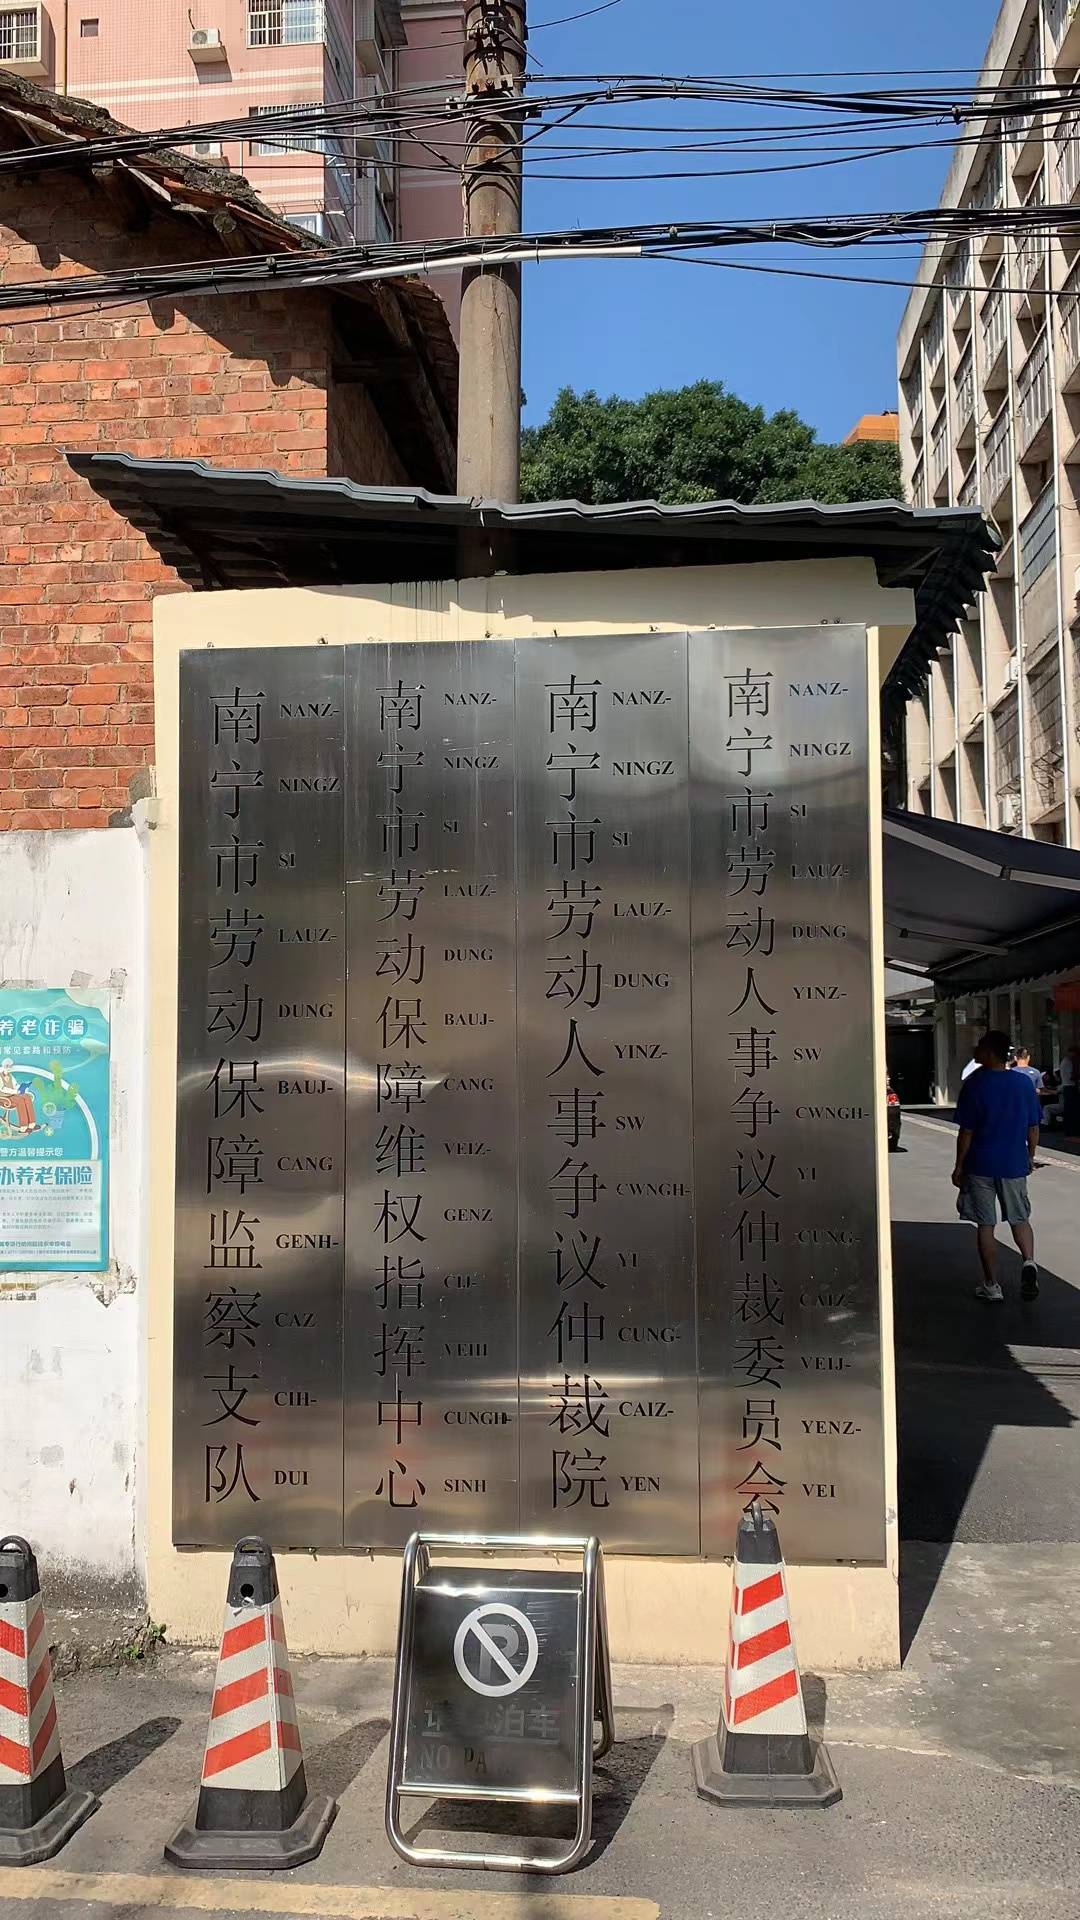 南宁市劳动保障监察支队
NANZ-NINGZ SI LAUZ-DUNG BAUJ-CANG GENH-CAZ CIH-DUI
南宁市劳动保障维权指挥中心
NANZ-NINGZ SI LAUZ-DUNG BAUJ-CANG VEIZ-GENZ CIJ-VEIH CUNGH-SINH
南宁市劳动人事争议仲裁院
NANZ-NINGZ SI LAUZ-DUNG YINZ-SW CWNGH-YI CUNG-CAIZ-YEN
南宁市劳动人事争议仲裁委员会
NANZ-NINGZ SI LAUZ-DUNG YINZ-SW CWNGH-YI CUNG-CAIZ VEIJ-YENZ-VEI
养老诈骗
常见套路和预防
警方温馨提示您
办养老保险
泊车
NO PA